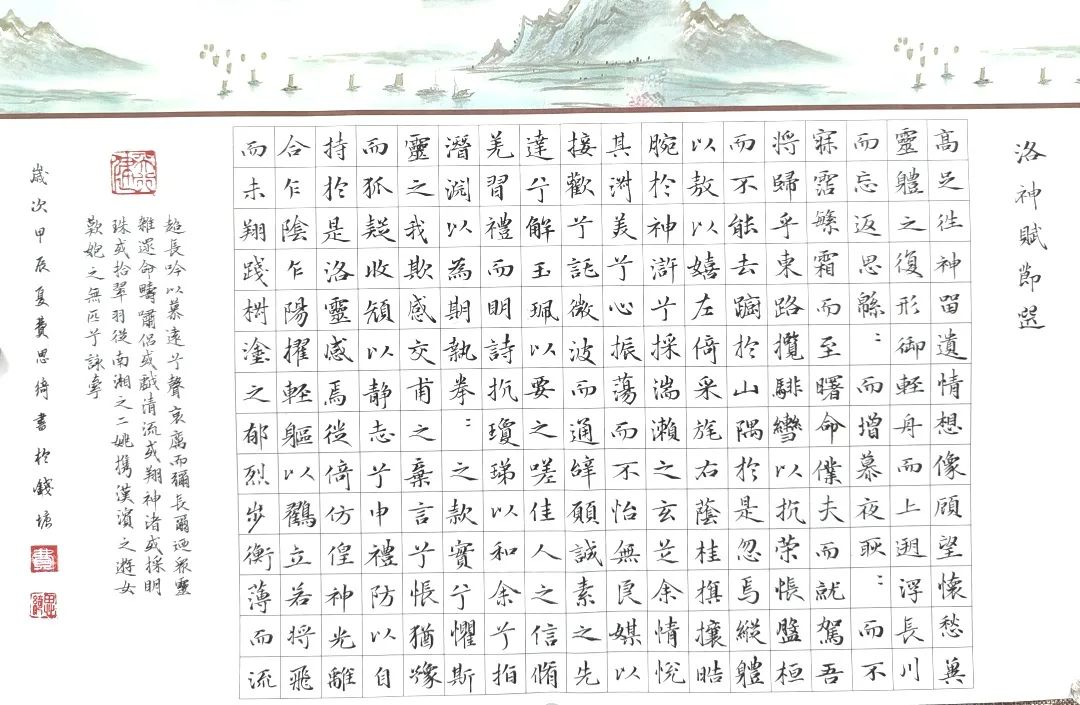 洛神賦節選
高足往神留遺情想像顧望懷愁冀
靈體之復形御輕舟而上遡浮長川
而忘返思緜：而增慕夜耿：而不
寐霑繁霜而至曙命僕夫而就駕吾
將歸乎東路攬騑轡以抗策悵盤桓
而不能去躕於山隅於是忽焉縱體
以敖以嬉左倚采旄右蔭桂旗攘皓
腕於神滸兮採湍瀨之玄芝余情悅
其淑美兮心振蕩而不怡無良媒以
接歡兮託微波而通辭願誠素之先
達兮解玉珮以要之嗟佳人之信脩
羌習禮而明詩抗瓊珶以和余兮指
潛淵以為期執拳：之款實兮懼斯
靈之我欺感交甫之棄言兮悵猶豫
而狐疑收頏以靜志兮申禮防以自
持於是洛靈感焉徙倚仿偟神光離
合乍陰乍陽擢輕軀以鸛立若將飛
而未翔踐椒塗之郁烈步衡薄而流
超長吟以慕遠兮聲哀厲而彌長爾迺眾靈
雜遝命疇嘯侶或戲清流或翔神渚或採明
珠或拾翠羽從南湘之二姚攜漢濱之遊女
歎匏之無匹兮詠牽
歲次甲辰夏費思綺書於錢塘